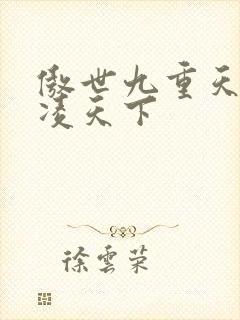 傲世九重天
凌天下
徐雲荣